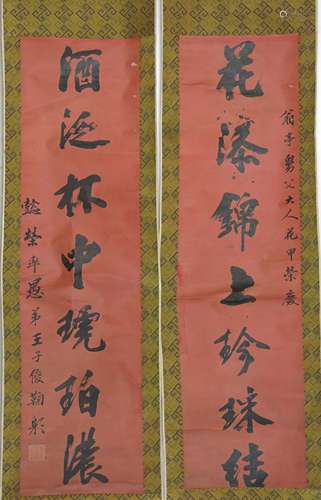 翁亭舅父大人花甲榮慶
花添錦上珍球結
酒泛杯中琥珀濃
懿榮率愚弟王子俊鞠躬